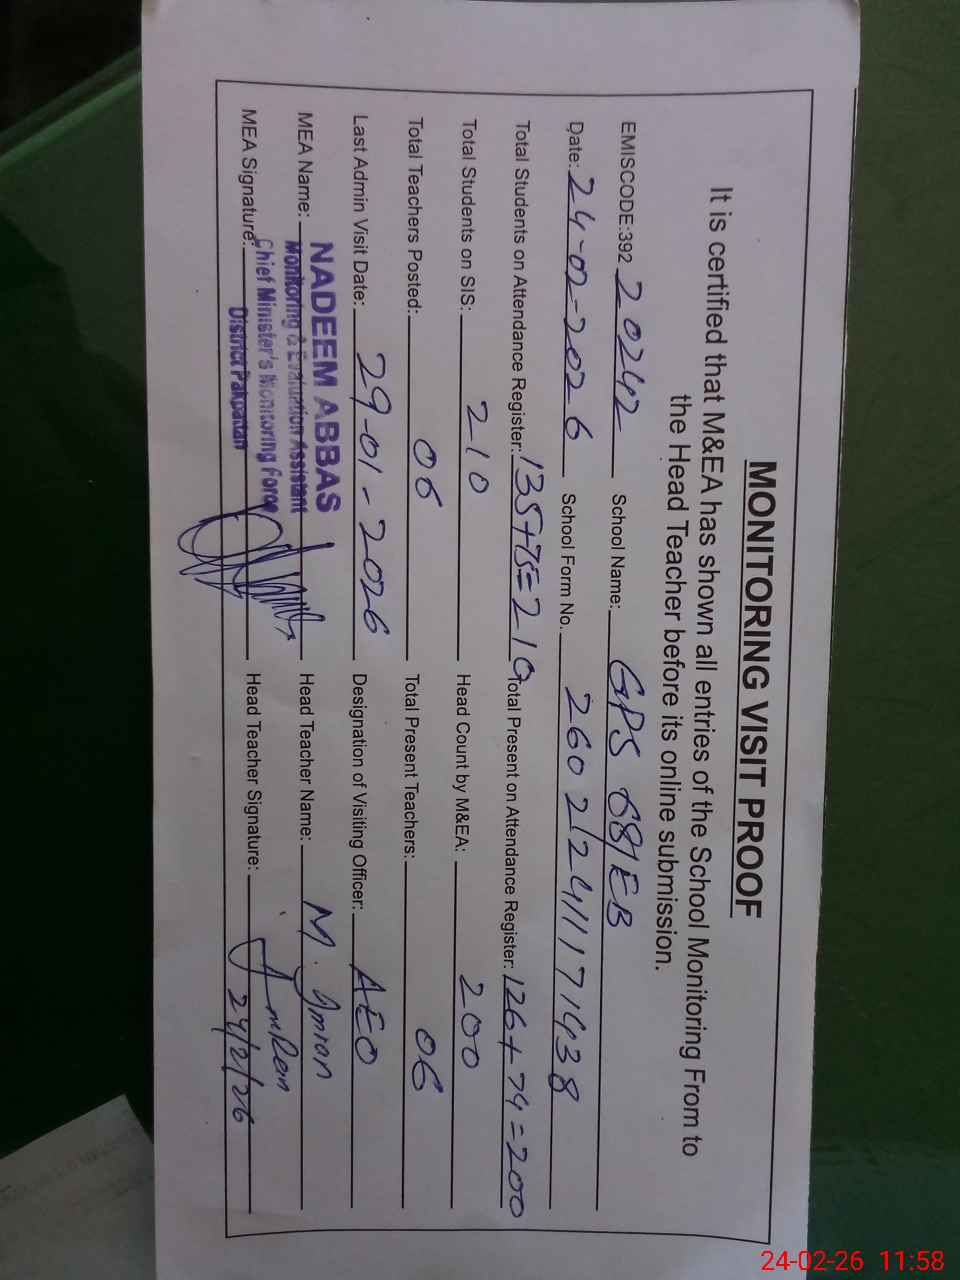 MONITORING VISIT PROOF
It is certified that M&EA has shown all entries of the School Monitoring From to
the Head Teacher before its online submission.
EMISCODE:392 20242 School Name: GPS 681EB
Date: 24-02-2026 School Form No. 2602241171438
Total Students on Attendance Register: 135+75=210 Total Present on Attendance Register: 126+74=200
Total Students on SIS: 210 Head Count by M&EA: 200
Total Teachers Posted: 06 Total Present Teachers: 06
Last Admin Visit Date: 29-01-2026 Designation of Visiting Officer: AEO
MEA Name: NADEEM ABBAS Head Teacher Name: M. Imran
Monitoring & Evaluation Assistant
Chief Minister's Monitoring Force
District Pakpattan
MEA Signature: Head Teacher Signature:
24/2/26
24-02-26 11:58